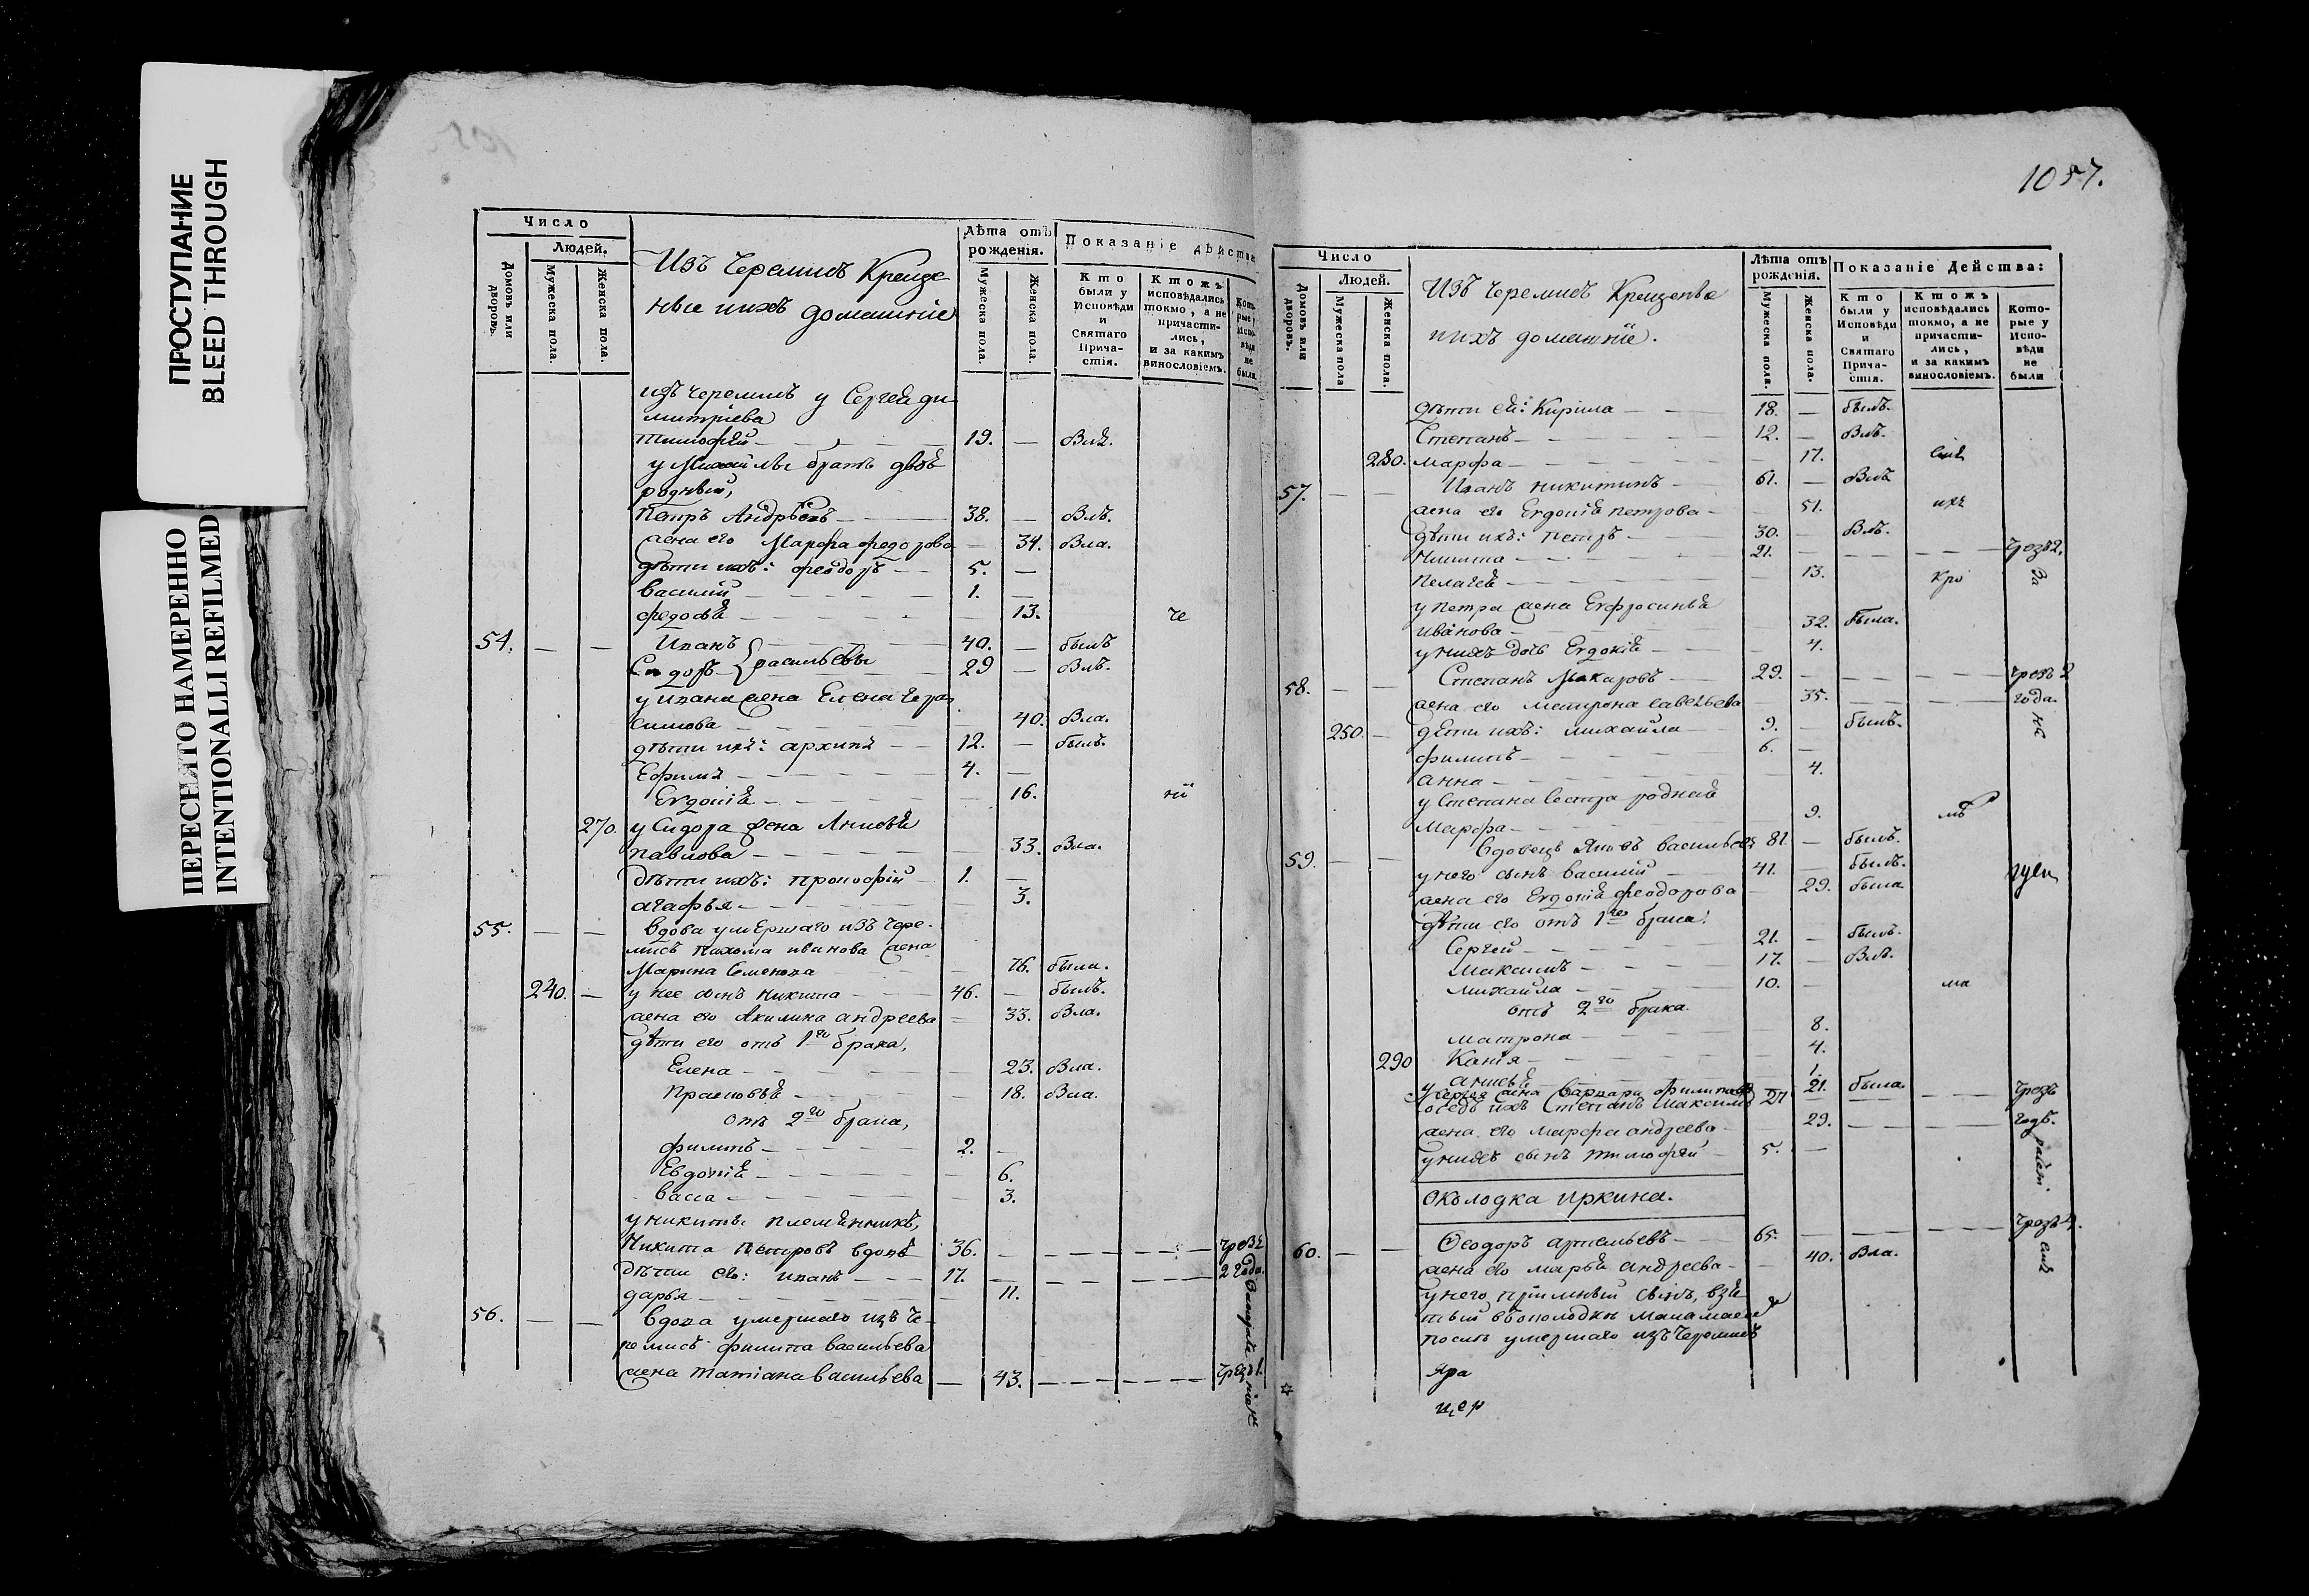 ПРОСТУПАНИЕ
BLEED THROUGH
ПЕРЕСНЯТО НАМЕРЕННО
INTENTIONALLI REFILMED
Число
Людей.
Домовъ или дворовъ.
Мужеска пола.
Женска пола.
Изъ Черемисъ Креще-
ные ихъ домашніе
Лѣта отъ рожденія.
Мужеска пола.
Женска пола.
Показаніе дѣйства
Кто были у Исповѣди и Святаго Прича-стія.
Ктожъ исповѣдались токмо, а не причасти-лись, и за какимъ винословіемъ.
Кото-рые у Испо-вѣди не были
изъ черемисъ у Сергея ди
митріева
тимофей 19. — Блъ.
у Михайлы братъ двою
родный,
Петръ Андрѣевъ 38. — Блъ.
жена его Марфа федорова — 34. Бла.
дѣти ихъ: феодоръ 5. —
василій 1. —
федосья — 13. че
54. — — Иванъ 40. — былъ
Сидоръ васильевы 29 — Блъ.
у ивана жена Елена гера
симова 40. Бла.
дѣти ихъ: архипъ 12. — былъ.
Ефимъ 4. —
Евдокія — 16. ні
270. у Сидора жена Анисья
павлова 33. Бла.
дѣти ихъ: прокофій 1. —
агафья 3.
55. — — вдова умершаго изъ чере-
мисъ Пахома иванова жена
Марина Семенова 76. была.
240. — у нее сынъ никита 46. — былъ.
жена его Акилина андреева — 33. Бла.
дѣти его отъ 1го брака,
Елена 23. Бла.
Прасковья 18. Бла.
отъ 2го брака,
филипъ 2. —
Евдокія 6.
васса — 3.
у никиты племянникъ,
Никита Петровъ вдовъ 36. — чрезъ
дѣти его: иванъ 17. — 2 года.
дарья 11.
56. — — вдова умершаго изъ че-
ремисъ филипа васильева
жена татіана васильева — 43. чрезъ 1.
1057.
Число
Людей.
Домовъ или дворовъ.
Мужеска пола
Женска пола.
Изъ Черемисъ Крещеные
ихъ домашніе.
Лѣта отъ рожденія.
Мужеска пола.
Женска пола.
Показаніе Дейсmва:
Кто были у Исповѣди и Святаго Прича-стія.
Ктожъ исповѣдались токмо, а не причасти-лись, и за какимъ винословіемъ.
Кото-рые у Испо-вѣди не были
дѣти ей: Кирила 18. — былъ.
Степанъ 12. — Блъ.
280. марфа — 17.
57. — — Иванъ никитинъ 61. — Блъ
жена его Евдокія петрова 51.
дѣти ихъ: петръ 30. — Блъ.
Никита 21. — чрезъ 2.
Пелагея 13.
у петра жена Ефросинья
иванова 32. была.
у нихъ дочь Евдокія 4.
58. — — Степанъ Макаровъ 29. — чрезъ 2
жена его матрона савельева 35. года.
250. — дѣти ихъ: михайла 9. — былъ.
филипъ 6. —
анна 4.
у Степана сестра родная
Марфа 9.
59. — — вдовецъ Яковъ васильевъ 81. — былъ.
у него сынъ василий 41. — былъ.
жена его Евдокія феодорова 29. была
дѣти его отъ 1го брака:
Сергей 21. — былъ.
Максимъ 17. — Блъ.
михайла 10. — ма
отъ 2го брака.
матрона 8.
290 Каптя 4.
анисья 1.
у Сергея жена варвара филипова 21. была.
Степанъ Максимовъ 27 чрезъ
жена его марфа андреева 29. годъ.
у нихъ сынъ тимофей 5. —
Околодка иркина.
60. — — Ѳеодоръ артемьевъ 65. чрезъ 4.
жена его марья андреева 40. Бла.
у него пріимный сынъ, взя
тый
послѣ умершаго изъ черемисъ
Яра
цер